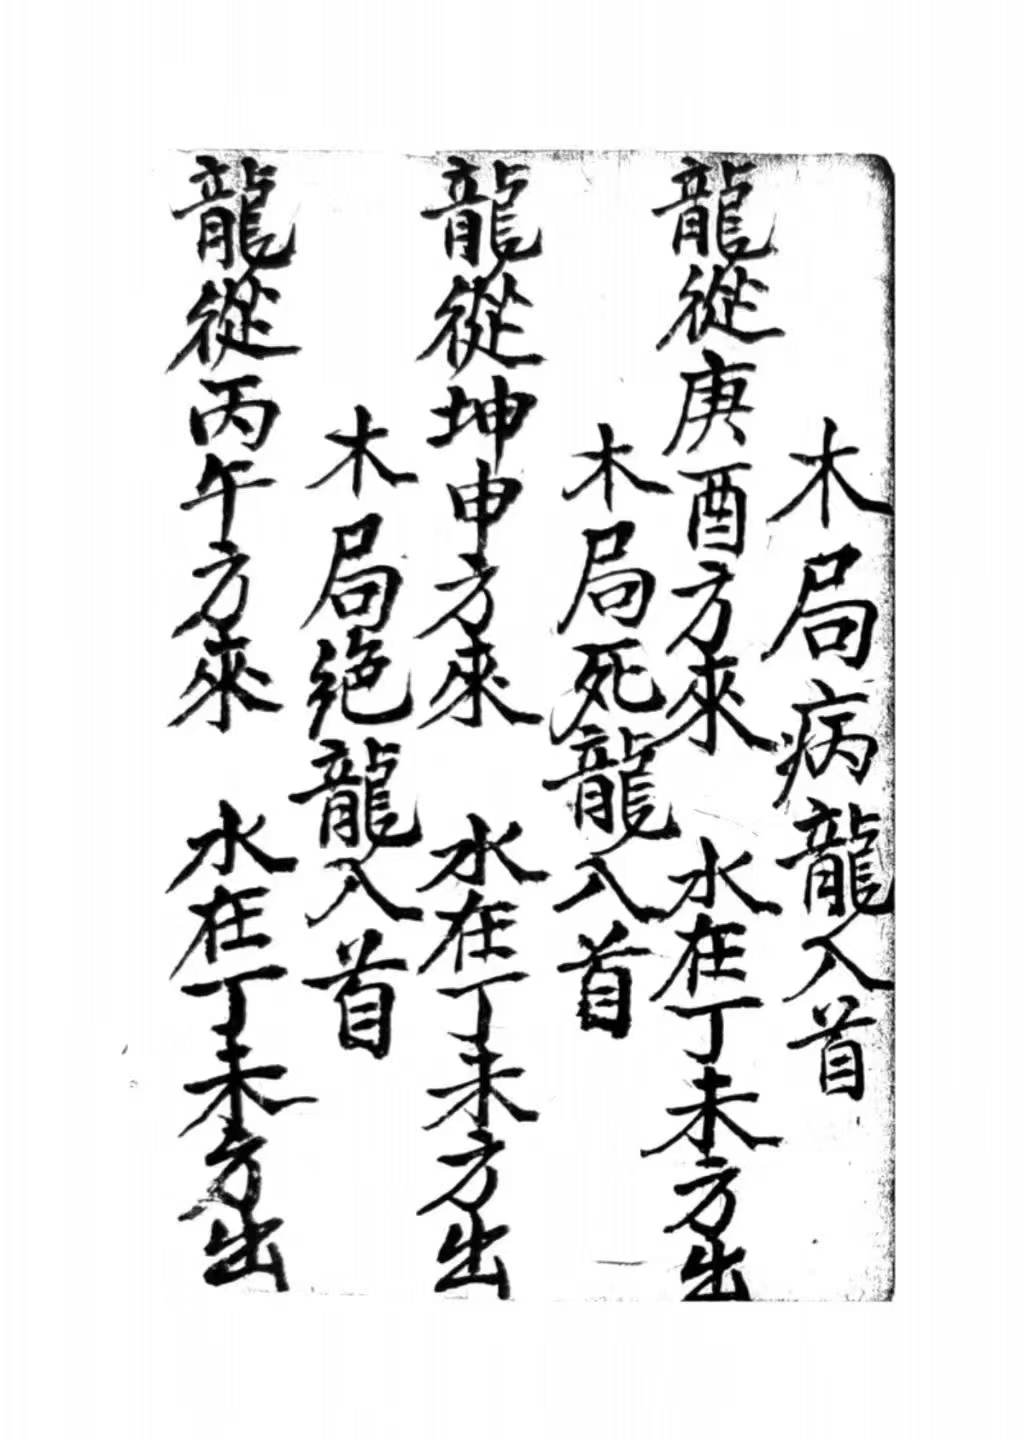 木局病龍入首
龍從庚酉方來　水在丁未方出
木局死龍入首
龍從坤申方來　水在丁未方出
木局绝龍入首
龍從丙午方來　水在丁未方出